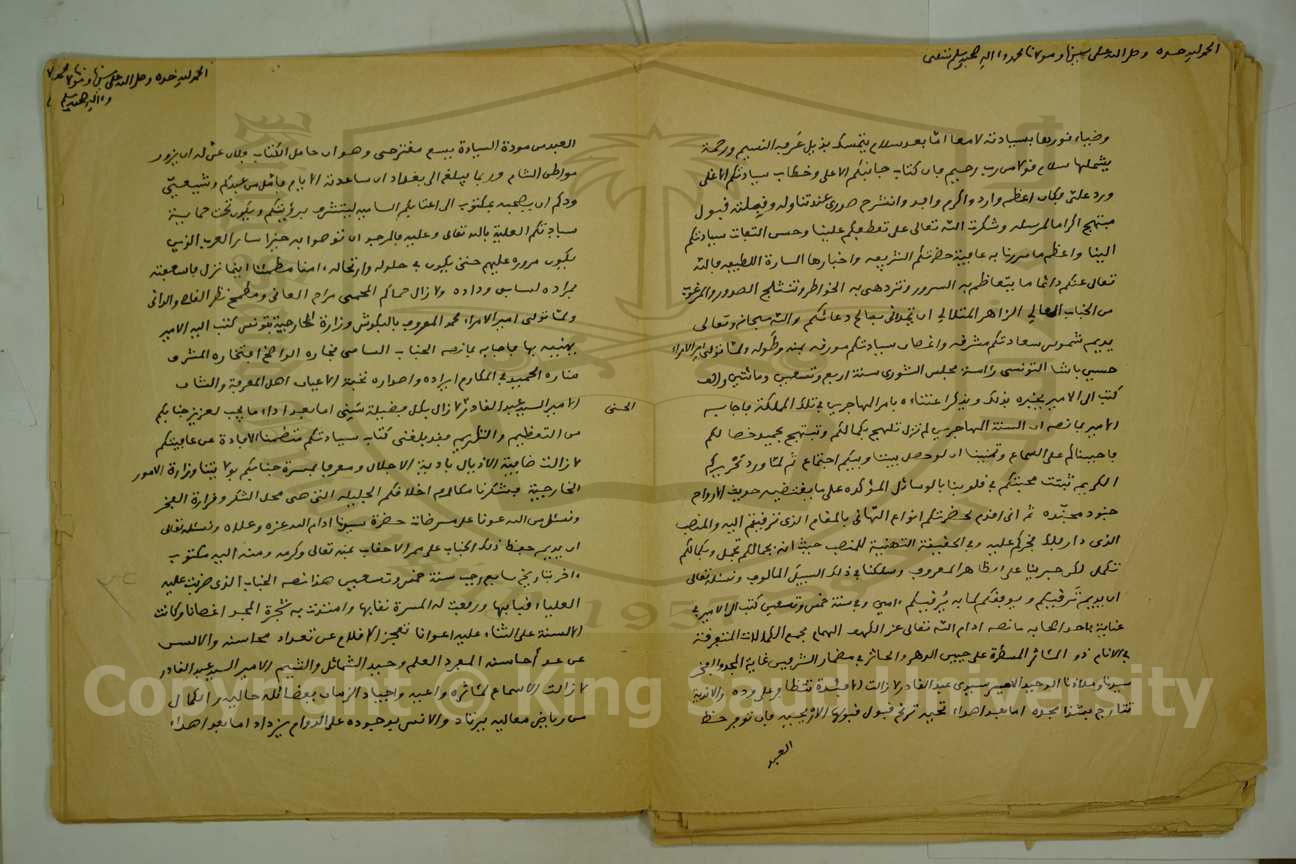 الحمد لله وحده وصلى الله على سيدنا ومولانا محمد وآله وصحبه وسلم
وضياء نورها بسيادته لامعا امّا بعد سلام يتمسك بذيل عَرفه النسيم ورحمة
يشملها سلام قولا من رب رحيم فان كتاب جنابكم الاعلى وخطاب سيادتكم الاغلى
ورد علىّ فكان اعظم وارد واكرم وافد وانشرح صدرى عند تناوله وقبلته قبول
مبتهج اكراما لمرسله وشكرت الله تعالى على تعطفكم علينا وحسن التفات سيادتكم
الينا واعظم ما سررنا به عافية حضرتكم الشريفه واخبارها السارة اللطيفه فالله
تعالى عنكم دائما ما يتعاظم به السرور وتزدهى به الخواطر وتنثلج الصدور والمرغوب
من الجناب العالي الزاهر المتلالي ان صالح دعائكم والله سبحانه وتعالى
يديم شموس سعادتكم مشرقه واغصان سيادتكم مورقه بمنه وطَوله ولمّا تولى امير الامراء
حسين باشا التونسى رئاسة مجلس الشورى سنة اربع وتسعين ومائتين والف
كتب الى الامير يخبره بذلك ويذكر اعتناءه بامر المهاجرين في تلك المملكة فاجابه
الامير بما نصه ان السنة المهاجرين لم تزل تلهج بكمالكم وتبتهج بحميد خصالكم
فاحببناكم على السماع وتمنينا ان لو حصل بيننا وبينكم اجتماع ثم لمّا ورد تحريركم
الكريم ثبتت محبتكم في قلوبنا بالوسائل المؤكده على ما يقتضيه حديث الارواح
جنود مجنّده ثم انى اقدم لحضرتكم انواع التهانى بالمقام الذى ترقيتم اليه والمنصب
الذى دار فلك فخركم عليه وفي الحقيقة التهنية للمنصب حيث انه بجمالكم تجمل وبكمالكم
تكمل لكن جرينا على الظاهر المعروف وسلكنا في ذلك السبيل المالوف ونسئله تعالى
ان يديم ترقيكم و يوفقكم لما به يُرقيكم ءامين وفي سنة خمس وتسعين كتب الى الامير في
عناية باحد اصحابه ما نصه ادام الله تعالى عز الكهف الهمام مجمع الكمالات المتفرقة
في الانام ذو المئاثر المسطرة على جبين الدهر والحائز في مضمار الشرف غاية المجد والفخر
سيدنا وملاذنا الوحيد الامير سيدى عبد القادر لا زالت الافئدة تتظافر على وده والاندية
تتارج بشذا مجده اما بعد اهداء تحية ترنح قبول قبولها الاريحيه فان توفر حظ
العبد
الحمد لله وحده وصلى الله على سيدنا ومولانا محمد
وءاله وصحبه وسلم
العبد من مودة السيادة بيسع مقترحى وهو ان حامل الكتاب فلان عنّ له ان يزور
مواطن الشام وربما يبلغ الى بغداد ان ساعدته الايام فامّل من عبدكم وشيعىّ
ودكم ان يصحبه بمكتوب الى اعتابكم الساميه ليتشرف برؤيتكم ويكون تحت حماية
سيادتكم العلية بالله تعالى وعليه فالمرجو ان توصوا به خيرا سائر العرب الذين
يكون مروره عليهم حتى يكون في حلوله وارتحاله ءامنا مطمئنا اينما نزل فاسعفته
بمراده لسابق وداده ولا زال حماكم المحمى مراح العافى ومطمح نظر القاصى والدانى
ولمّا تولى امير الامراء محمد المعروف بالبكوش وزارة الخارجية بتونس كتب اليه الامير
يهنيه بها فاجابه بما نصه الجناب السامى فخاره الواضح افتخاره المشرف
مناره الحميد في المكارم ايراده واصداره نخبة الاعيان اهل المعرفة والشان
الامير السيد عبد القادر الحسنى لا زال بكل فضيلة سَنِى اما بعد اداء ما يجب لعزيز جنابكم
من التعظيم والتكريم فقد بلغنى كتاب سيادتكم متضمنا الافادة عن عافيتكم
لا زالت ضافية الاذيال بادية الاجلال ومعرفا بمسرة جنابكم بولايتنا وزارة الامور
الخارجية فشكرنا مكارم اخلاقكم الجليله التى هى محل الشكر وقرارة الفخر
ونسئل من الله عونا على مرضاة حضرة سيدنا ادام الله عزه وعلاه ونسئله تعالى
ان يديم حفظ ذلك الجناب على ممر الاحقاب بمنه تعالى وكرمه ومنه اليه مكتوب
ءاخر بتاريخ سابع رجب سنة خمس وتسعين هذا نصه الجناب الذى ضربت عليه
العلياء قبابها ورفعت له المسرة نقابها وامتدت به شجرة المجد اغصانا وكانت
الالسنة على الثناء عليه اعوانا تعجز الاقلام عن تعداد محاسنه والالسن
عن عد أحاسنه المفرد العلم وحيد الشمائل والشيم الامير السيد عبد القادر
لا زالت الاسماع لمئاثره واعيه واجياد الزمان بفضائله حاليه والكمال
من رياض معاليه يرتاد والانس بوجوده على الدوام يزداد اما بعد اهداء
Copyright © King Saud University
1957